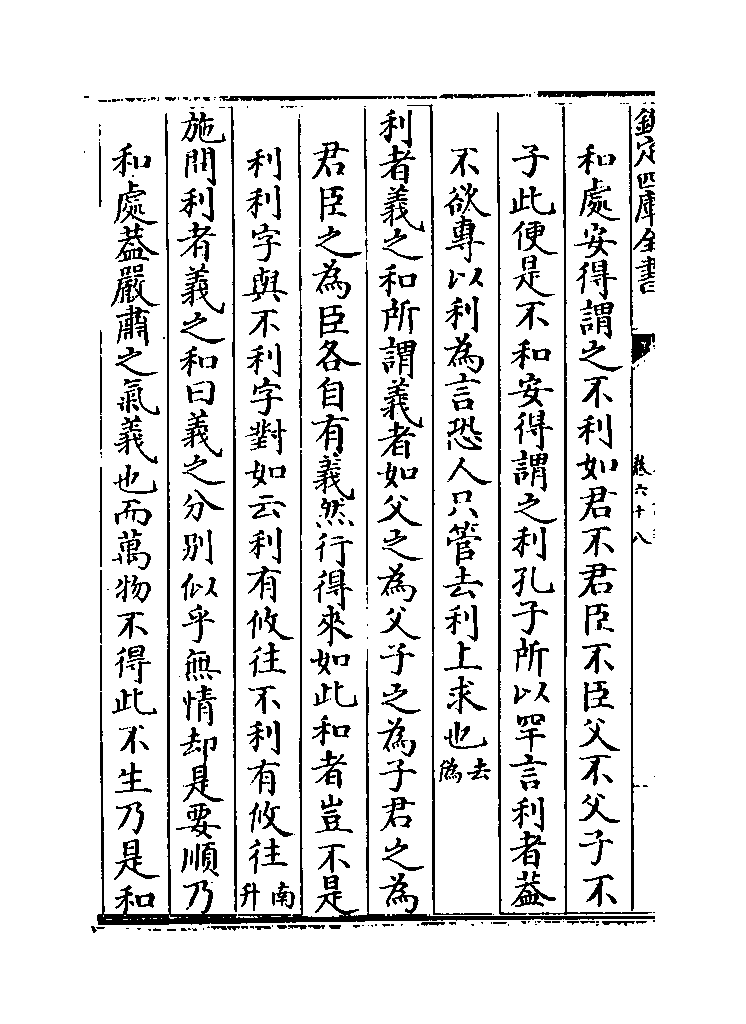 欽定四庫全書
卷六十八
和處安得謂之不利如君不君臣不臣父不父子不
子此便是不和安得謂之利孔子所以罕言利者葢
不欲專以利為言恐人只管去利上求也去偽
利者義之和所謂義者如父之為父子之為子君之為
君臣之為臣各自有義然行得來如此和者豈不是
利利字與不利字對如云利有攸往不利有攸往南升
施問利者義之和曰義之分別似乎無情却是要順乃
和處葢嚴肅之氣義也而萬物不得此不生乃是和